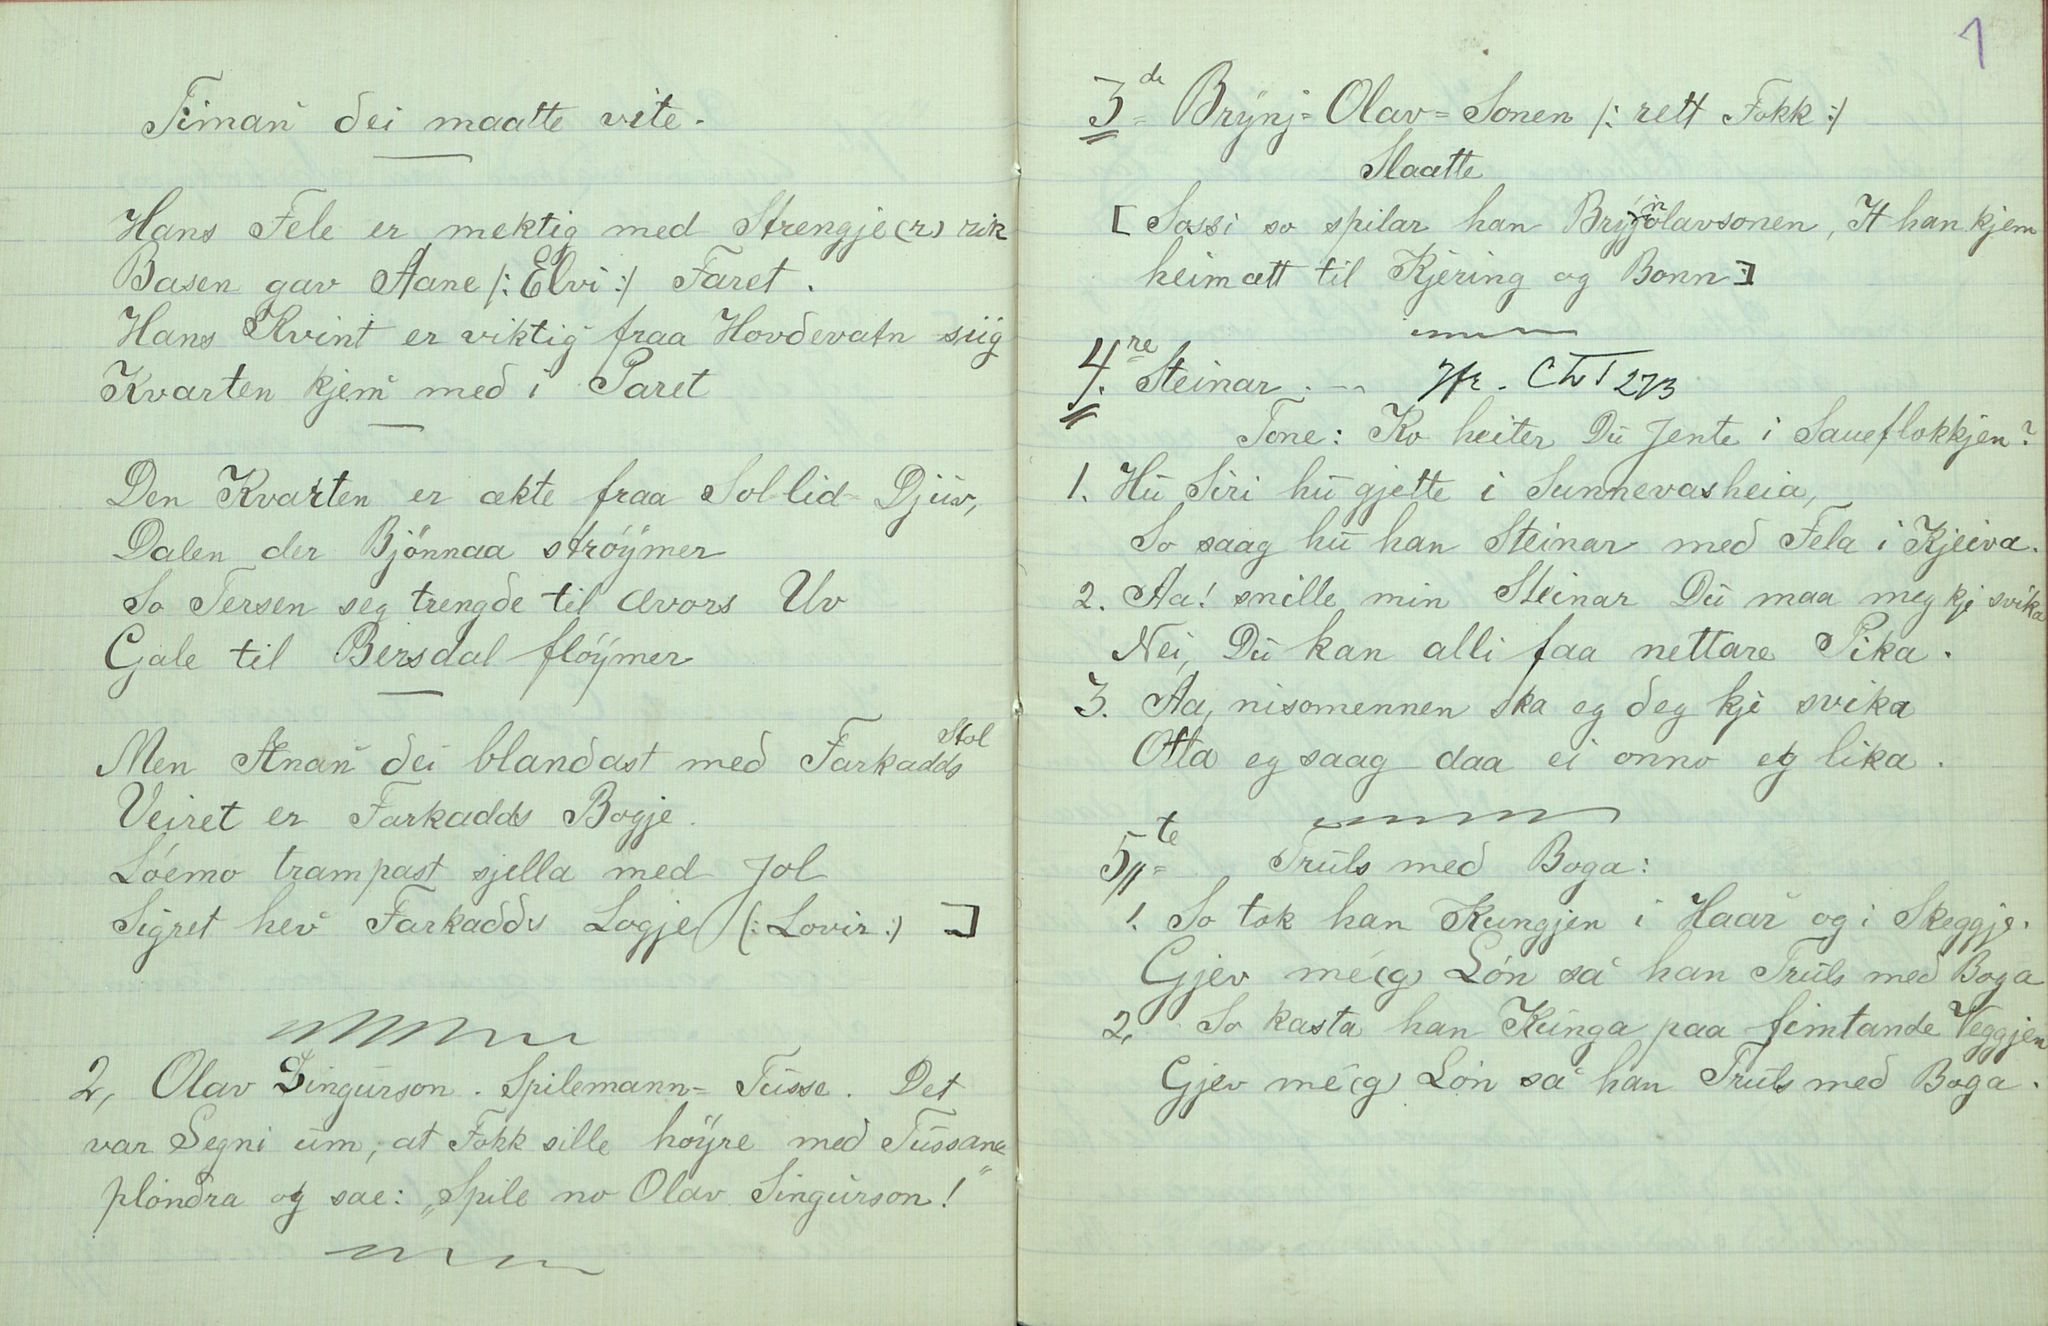 Timan dei maatte vite.
Hans Fele er mektig med Strengje(r) rik
Basen gav Aane /: Elvi :/ Faret.
Hans Kvint er viktig fraa Hovdevatn siig
Kvarten kjem med i Paret
Den Kvarten er ækte fraa Sollid-Djuv,
Dalen der Bjönnaa ströymer
So Tersen seg trengde til Ævors Uv
Gale til Bersdal flöymer
Men Anan dei blandast med Farkadds Stol
Veiret er Farkadds Bogje.
Lóemo trampast sjella med Jol
Sigret hev Farkadds Logje (: Lovir :) ]
2, Olav Singurson. Spilemann= Tusse. Det
var Segni um, at Fokk sille höyre med Tussane
plóndra og sae: „Spile no Olav Singurson!"
1
3de= Brynj=Olav=Sonen /: rett Fokk :/
Slaatte
[ Sossi so spilar han Brynjolavsonen, It han kjem
heimatt til Kjering og Bonn ]
4.re Steinar. — Jfr. ChT 273
Tone: Ko heiter Du Jente i Saueflokkjen?
1. Hu Siri hu gjette i Sunnevasheia,
So saag hu han Steinar med Fela i Kjeiva.
2. Aa! snille min Steinar Du maa meg kje svika
Nei, Du kan alli faa nettare Pika.
3. Aa, nisomennen ska eg deg kje svika
Otta eg saag daa ei onno eg lika.
5te= Truls med Boga:
1. So tok han Kungjen i Haar og i Skeggje.
Gjev mé(g) Lón sa han Truls med Boga
2, So kasta han Kunga paa fimtande Veggjen
Gjev mé(g) Lón sa han Truls med Boga.